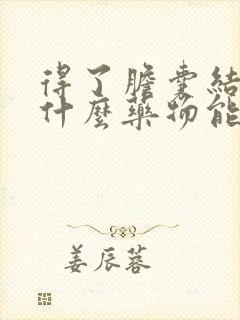 得了膽囊結
什麼藥物能
姜辰蓉